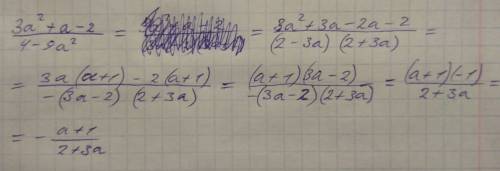 (3a² + a - 2)/(4 - 9a²) = = (3a² + 3a - 2a - 2)/((2 - 3a)(2 + 3a)) =
= (3a(a+1) - 2(a+1))/(-(3a-2)(2+3a)) = ((a+1)(3a-2))/(-(3a-2)(2+3a)) = ((a+1)(-1))/(2+3a) =
= - (a+1)/(2+3a)